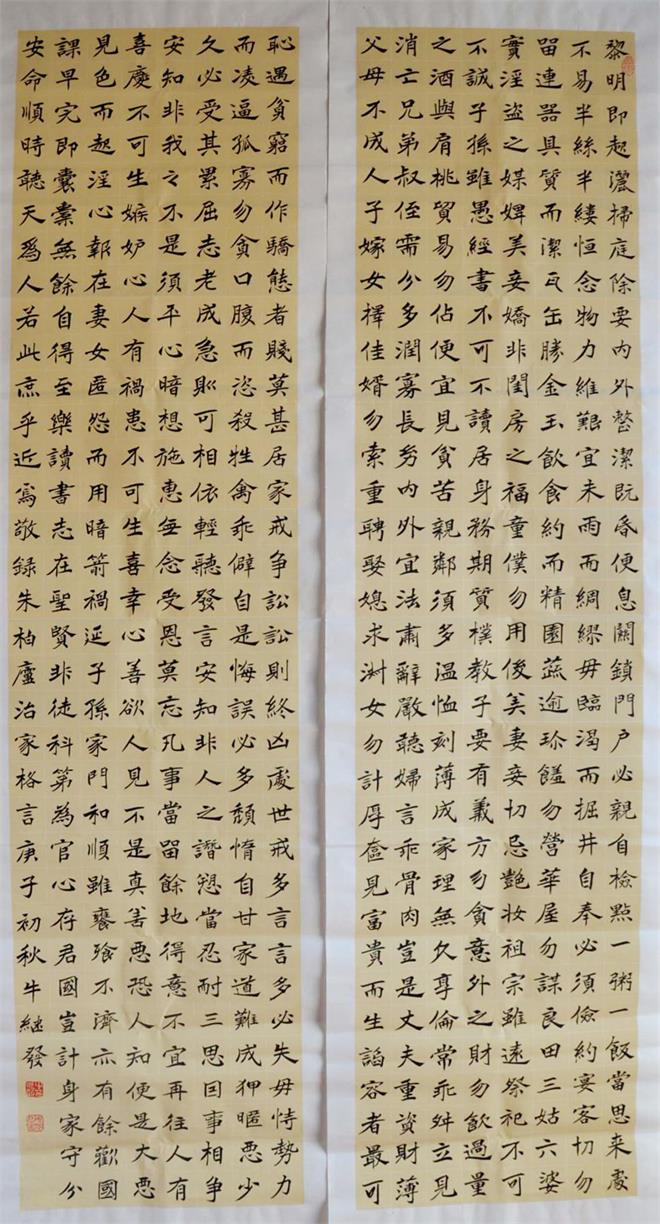 黎明即起灑掃庭除要內外整潔既昏便息關鎖門户必親自檢點一粥一飯當思来處
不易半絲半縷恒念物力維艱宜未雨而綢繆毋臨渴而掘井自奉必須儉約宴客切勿
留連器具質而潔瓦缶勝金玉飲食約而精園蔬逾珍饈勿營華屋勿謀良田三姑六婆
實淫盜之媒婢美妾嬌非閨房之福童僕勿用俊美妻妾切忌艷妝祖宗雖遠祭祀不可
不誠子孫雖愚經書不可不讀居身務期質樸教子要有義方勿貪意外之財勿飲過量
之酒與肩挑貿易勿佔便宜見貧苦親鄰須多溫恤刻薄成家理無久享倫常乖舛立見
消亡兄弟叔侄需分多潤寡長幼內外宜法肅辭嚴聽婦言乖骨肉豈是丈夫重資財薄
父母不成人子嫁女擇佳婿勿索重聘娶媳求淑女勿計厚奩見富貴而生諂容者最可
恥遇貧窮而作驕態者賤莫甚居家戒争訟訟則終凶處世戒多言言多必失毋恃勢力
而凌逼孤寡勿貪口腹而恣殺牲禽乖僻自是悔誤必多頹惰自甘家道難成狎暱惡少
久必受其累屈志老成急則可相依輕聽發言安知非人之譖愬當忍耐三思因事相争
安知非我之不是須平心暗想施惠毋念受恩莫忘凡事當留餘地得意不宜再往人有
喜慶不可生嫉妒心人有禍患不可生喜幸心善欲人見不是真善惡恐人知便是大惡
見色而起淫心報在妻女匿怨而用暗箭禍延子孫家門和順雖饔飧不濟亦有餘歡國
課早完即囊橐無餘自得至樂讀書志在聖賢非徒科第為官心存君國豈計身家守分
安命順時聽天爲人若此庶乎近焉敬録朱柏廬治家格言庚子初秋牛継發